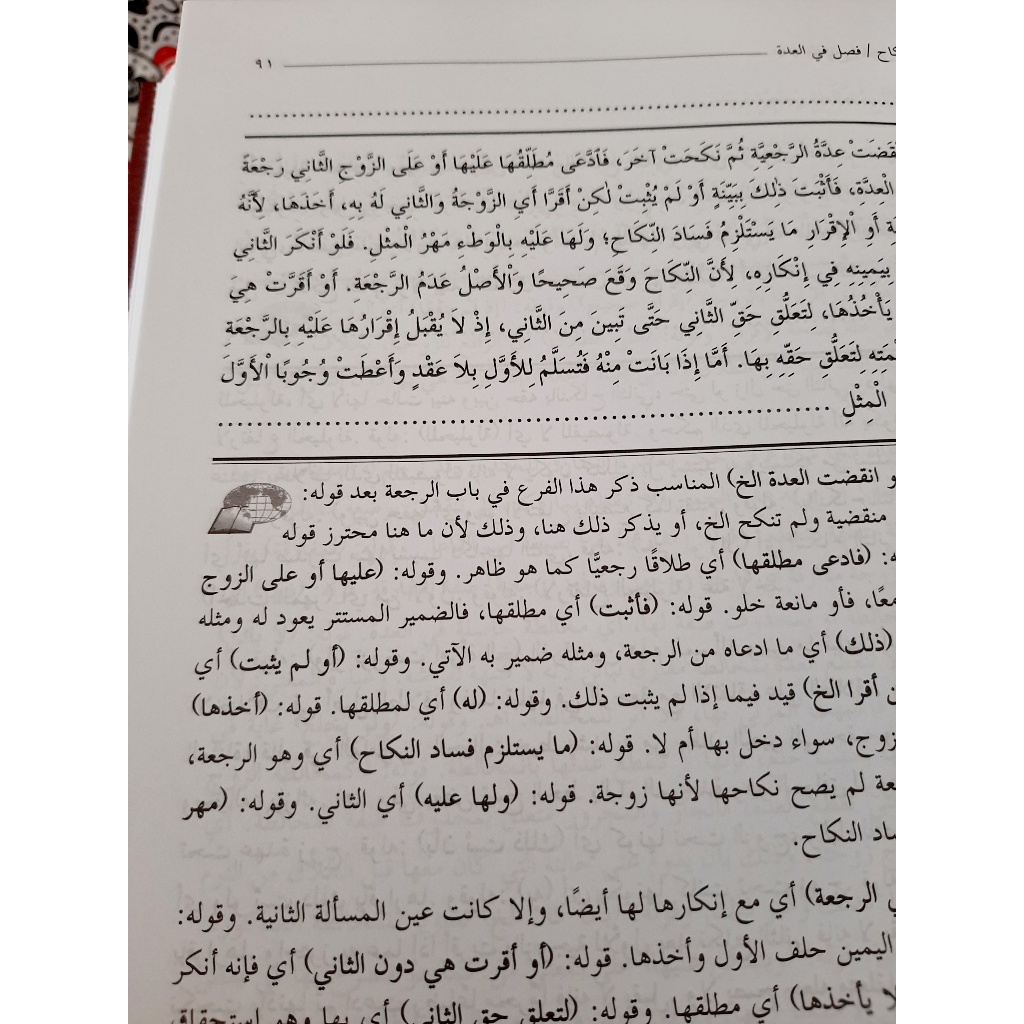 فصل في العدة
٩١
عِدَّةُ الرَّجْعِيَّةِ ثُمَّ نَكَحَتْ آخَرَ، فَٱدَّعَى مُطَلِّقُهَا عَلَيْهَا أَوْ عَلَى الزَّوْجِ الثَّانِي رَجْعَةً
الْعِدَّةِ، فَأَثْبَتَ ذٰلِكَ بِبَيِّنَةٍ أَوْ لَمْ يُثْبِتْ لٰكِنْ أَقَرَّا أَيِ الزَّوْجَةُ وَالثَّانِي لَهُ بِهِ، أَخَذَهَا، لِأَنَّهُ
أَوِ الْإِقْرَارِ مَا يَسْتَلْزِمُ فَسَادَ النِّكَاحِ؛ وَلَهَا عَلَيْهِ بِالْوَطْءِ مَهْرُ الْمِثْلِ. فَلَوْ أَنْكَرَ الثَّانِي
بِيَمِينِهِ فِي إِنْكَارِهِ، لِأَنَّ النِّكَاحَ وَقَعَ صَحِيحًا وَالْأَصْلُ عَدَمُ الرَّجْعَةِ. أَوْ أَقَرَّتْ هِيَ
يَأْخُذُهَا، لِتَعَلُّقِ حَقِّ الثَّانِي حَتَّى تَبِينَ مِنَ الثَّانِي، إِذْ لَا يُقْبَلُ إِقْرَارُهَا عَلَيْهِ بِالرَّجْعَةِ
لِتَعَلُّقِ حَقِّهِ بِهَا. أَمَّا إِذَا بَانَتْ مِنْهُ فَتُسَلَّمُ لِلْأَوَّلِ بِلَا عَقْدٍ وَأَعْطَتْ وُجُوبًا الْأَوَّلَ
الْمِثْلِ
انقضت العدة الخ) المناسب ذكر هذا الفرع في باب الرجعة بعد قوله:
منقضية ولم تنكح الخ، أو يذكر ذلك هنا، وذلك لأن ما هنا محترز قوله
(فادعى مطلقها) أي طلاقًا رجعيًّا كما هو ظاهر. وقوله: (عليها أو على الزوج
فأو مانعة خلو. قوله: (فأثبت) أي مطلقها، فالضمير المستتر يعود له ومثله
(ذلك) أي ما ادعاه من الرجعة، ومثله ضمير به الآتي. وقوله: (أو لم يثبت) أي
أقرا الخ) قيد فيما إذا لم يثبت ذلك. وقوله: (له) أي لمطلقها. قوله: (أخذها)
سواء دخل بها أم لا. قوله: (ما يستلزم فساد النكاح) أي وهو الرجعة،
لم يصح نكاحها لأنها زوجة. قوله: (ولها عليه) أي الثاني. وقوله: (مهر
النكاح.
الرجعة) أي مع إنكارها لها أيضًا، وإلا كانت عين المسألة الثانية. وقوله:
اليمين حلف الأول وأخذها. قوله: (أو أقرت هي دون الثاني) أي فإنه أنكر
يأخذها) أي مطلقها. وقوله: (لتعلق حق الثاني) أي بها وهو استحقاق